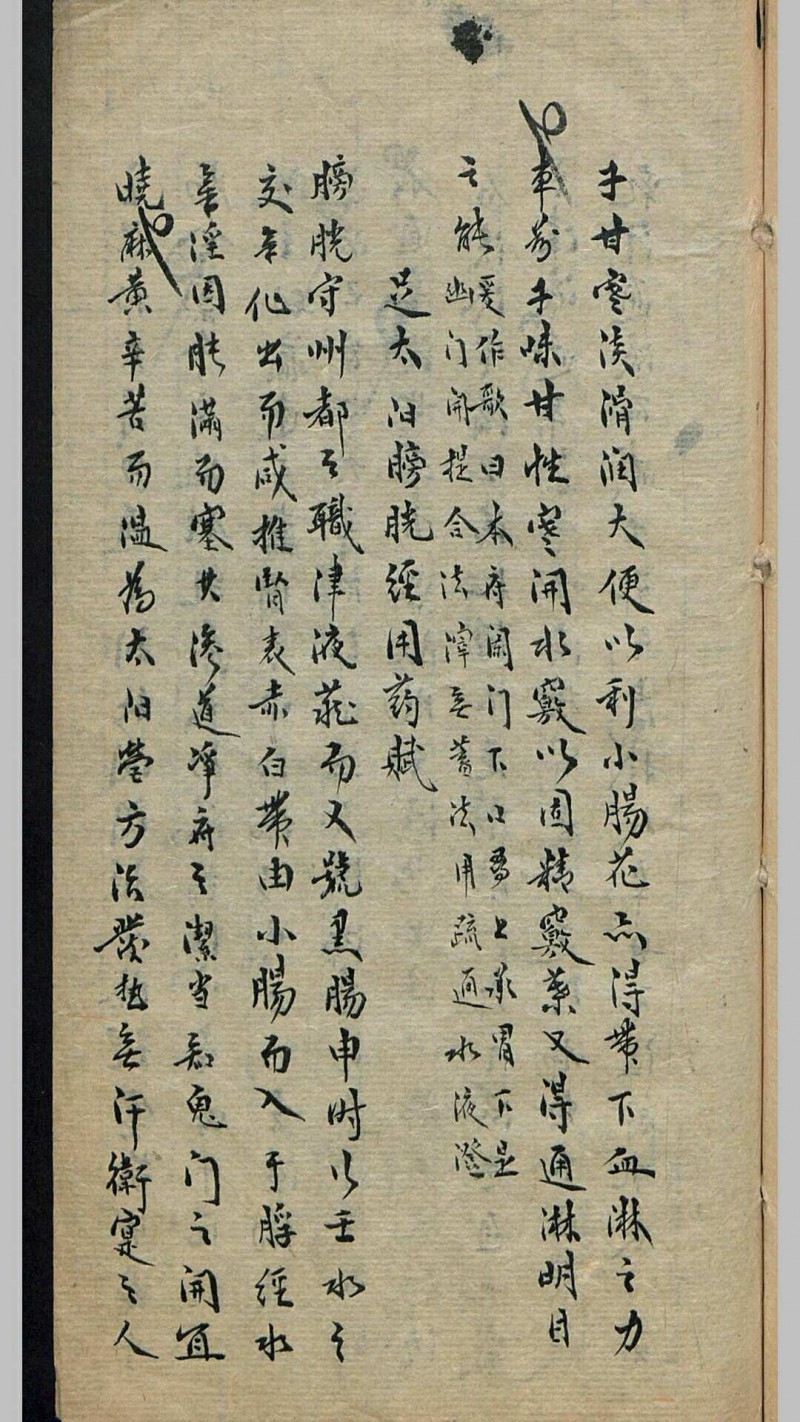 子甘寒淡滑润大便以利小腸花亦得带下血淋之力
車前子味甘性寒開水竅以固精竅葉又得通淋明目
之能
爰作歌曰本府闌门下口爲上承胃下是
幽门開提合法滓無蓄法用疏通水液澄
足太阳膀胱經用药賦
膀胱守州都之職津液藏而又號黑腸申时以壬水之
交氣化出而咸推腎表赤白带由小腸而入于脬經水
無淫因胀滿而塞其滲道凈府之潔当知鬼门之開宜
曉麻黄辛苦而温爲太阳營方治發热無汗衛寔之人